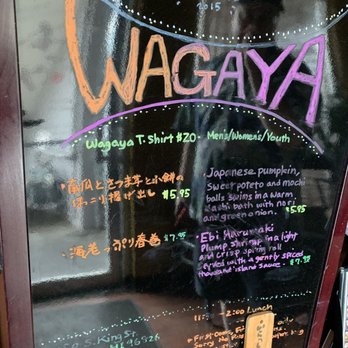 2015
WAGAYA
Wagaya T-Shirt $20 - Men's/Women's/Youth
・南瓜とさつま芋と小餅の
ほっこり揚げ出し
$5.95
・Japanese pumpkin,
sweet potato and mochi
balls swims in a warm
dashi bath with nori
and green onion. $5.95
・海老っぷり春巻 $7.95
・Ebi Harumaki
Plump shrimp in a light
and crisp spring roll
served with a gently spiced
thousand island sauce. $7.95
S. King St.
HI 96826
2:00 Lunch
First Come, First